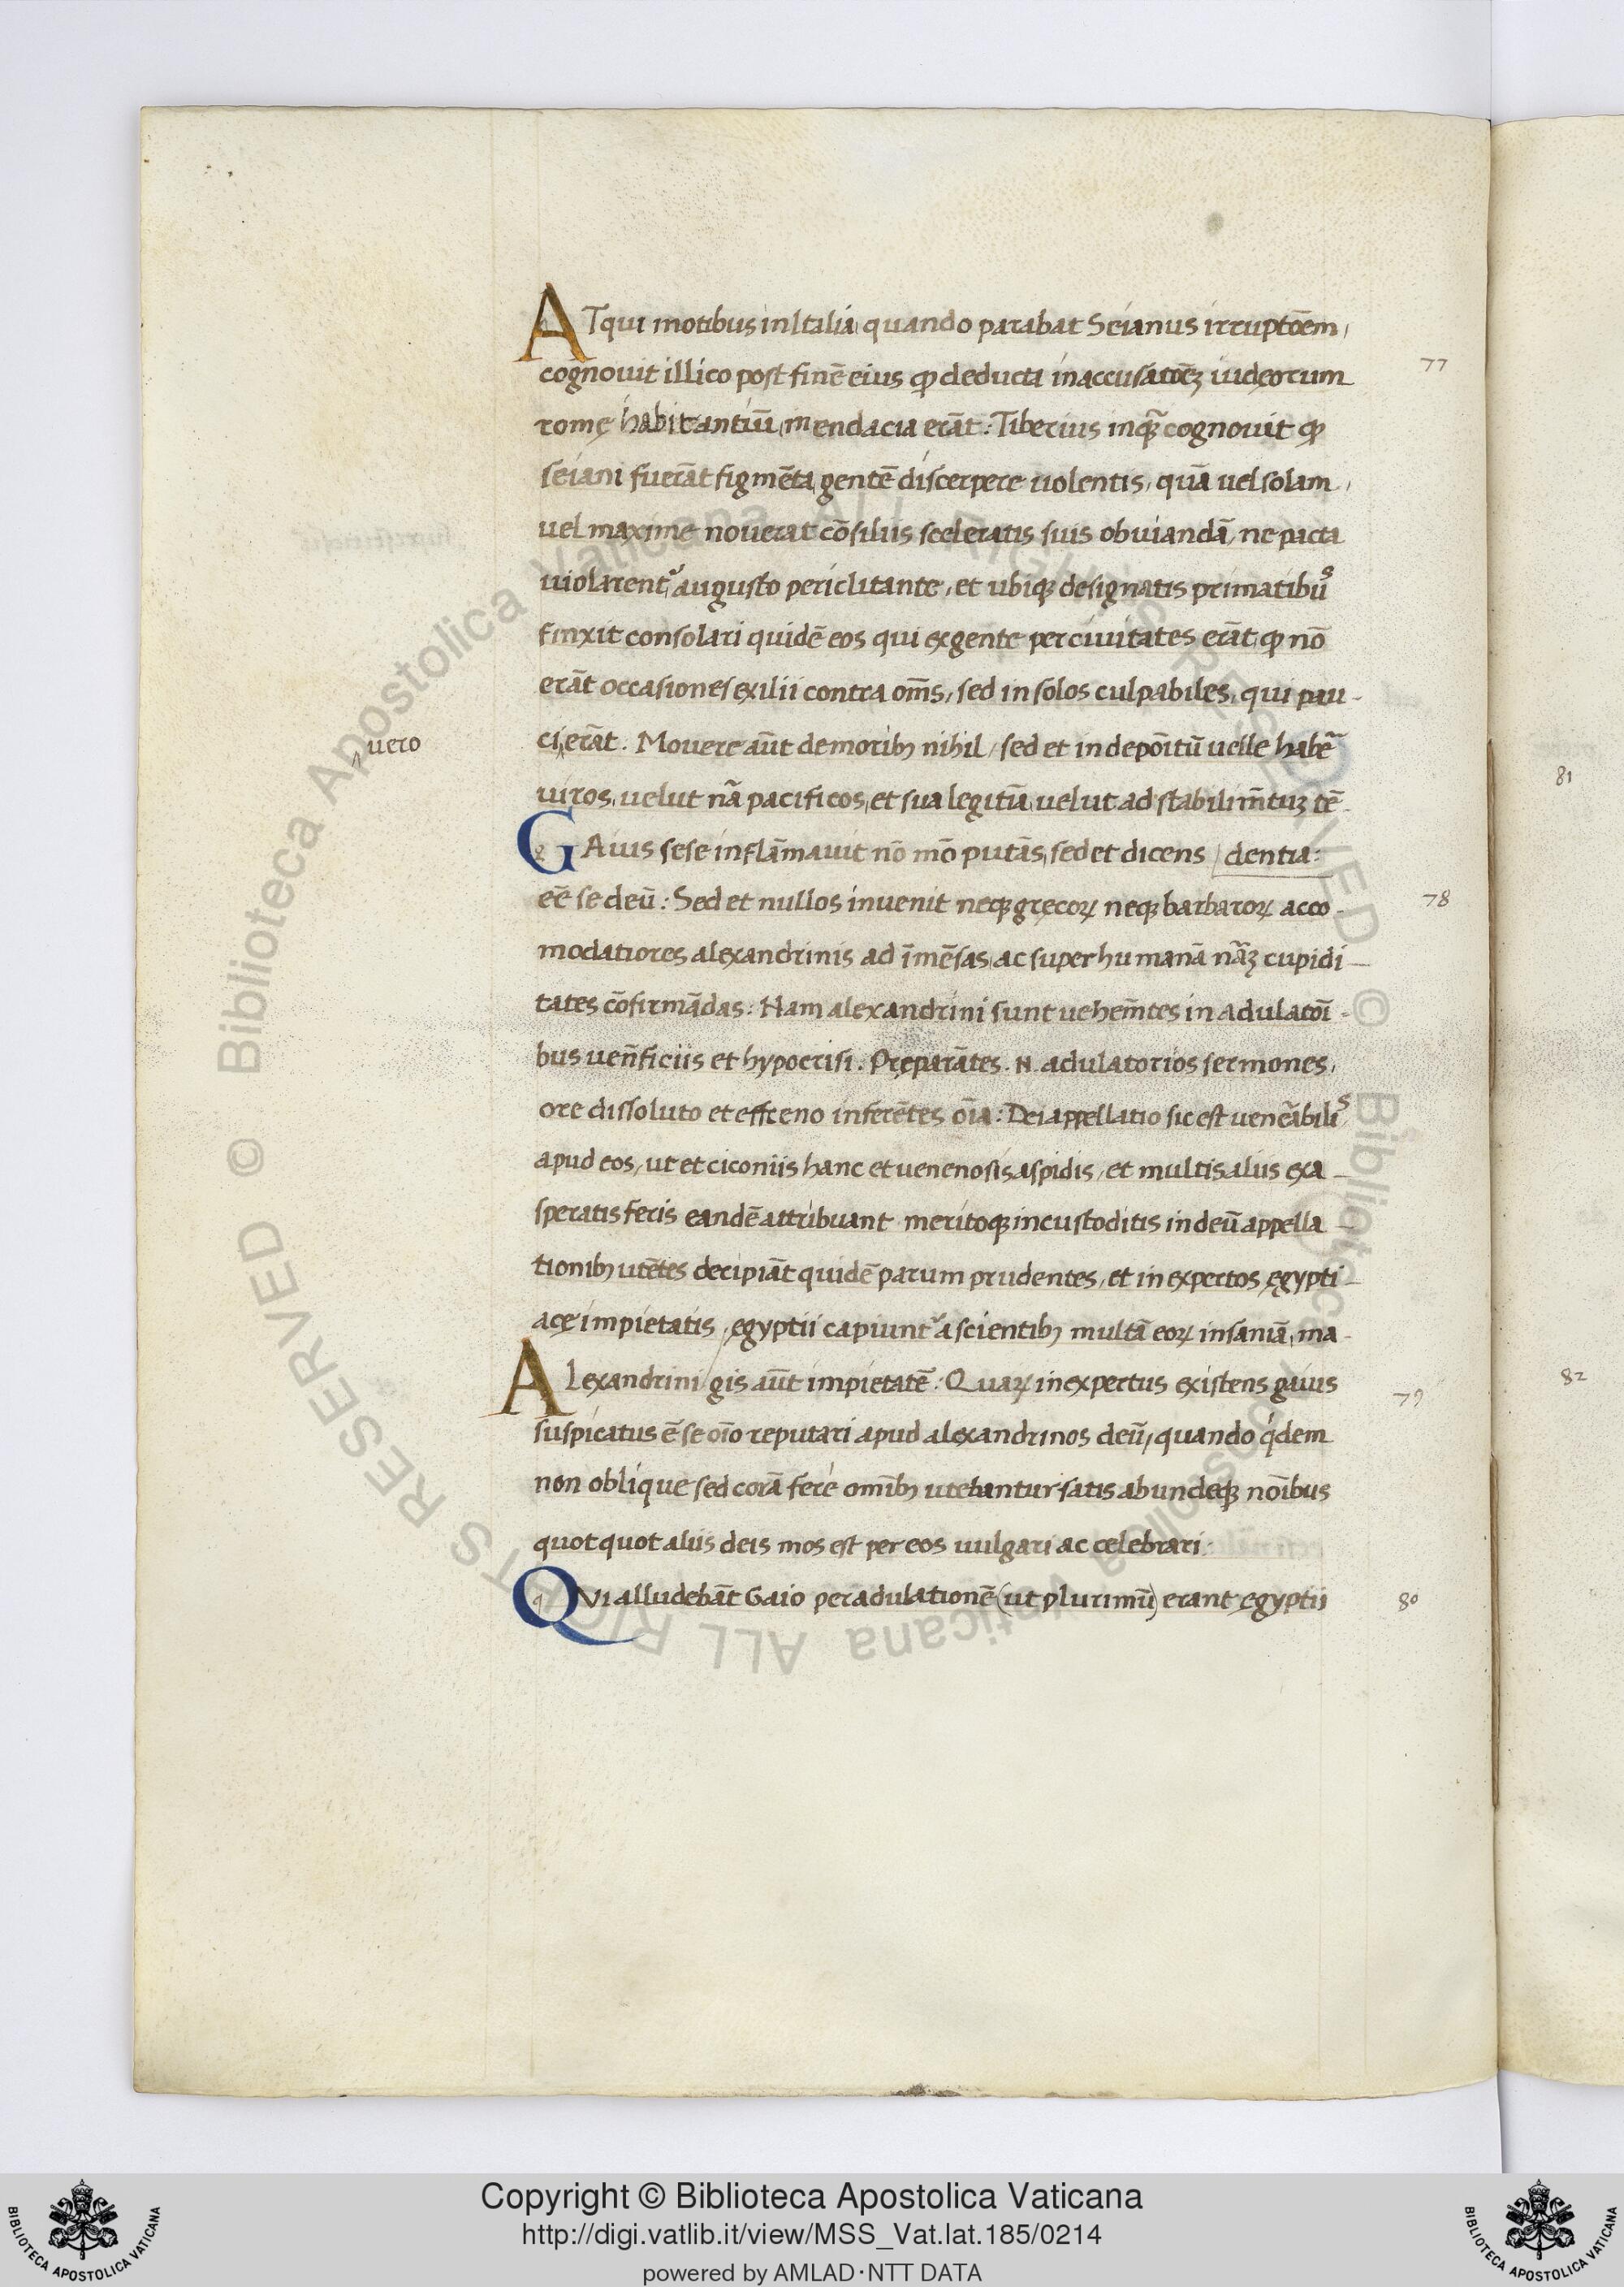 ATqui motibus in Italia quando parabat Seianus irruptōem,
cognouit illico post finē eius ꝙ deducta in accusatōeȝ iudęorum
romę habitantiū mendacia erāt: Tiberius inquā cognouit ꝙ
seiani fuerāt figmēta gentē discerpere uolentis, quā uel solam,
uel maxime nouerat cōsiliis sceleratis suis obuiandā, ne pacta
uiolarent᷑ augusto periclitante, et ubiqꝫ designatis primatibuˢ
finxit consolari quidē eos qui ex gente per ciuitates erāt ꝙ nō
erāt occasiones exilii contra om̄s, sed in solos culpabiles, qui pau-
ci erāt. Mouere aūt de moribꝫ nihil, sed et in depōitū uelle habē
uero
uiros, uelut nā pacificos, et sua legitīa uelut ad stabilim̄tuȝ tē-
GAius sese inflāmauit nō mō putās, sed et dicens / dentia:
eē se deū: Sed et nullos inuenit neqꝫ gręcoꝝ neqꝫ barbaroꝝ acco-
modatiores alexandrinis ad īmēsas, ac super humanā nāȝ cupidi-
tates cōfirmādas: Nam alexandrini sunt uehem̄tes in adulatoī-
bus ueneficiis et hypocrisi. Pręparātes .N. adulatorios sermones,
ore dissoluto et effreno inferētes oīa: Dei appellatio sic est uenēabiliˢ
apud eos, ut et ciconiis hanc et uenenosis aspidis, et multis aliis exa-
speratis feris eandē attribuant meritoqꝫ incustoditis in deū appella-
tionibꝫ utētes decipiāt quidē parum prudentes, et inexpertos ęgypti-
acę impietatis, ęgyptii capiunt᷑ a scientibꝫ multā eoꝝ insaniā, ma-
Alexandrini / gis aūt impietatē: Quaꝝ inexpertus existens gaius
suspicatus ē se oīo reputari apud alexandrinos deū, quando qͥdem
non oblique sed corā fere omībꝫ utebantur satis abundeqꝫ noībus
quotquot aliis deis mos est per eos uulgari ac celebrari.
QVi alludebāt Gaio per adulationē (ut plurimū) erant ęgyptii
77
78
79
80
81
82
Copyright © Biblioteca Apostolica Vaticana
http://digi.vatlib.it/view/MSS_Vat.lat.185/0214
powered by AMLAD·NTT DATA
BIBLIOTECA APOSTOLICA VATICANA
BIBLIOTECA APOSTOLICA VATICANA
© Biblioteca Apostolica Vaticana ALL RIGHTS RESERVED © Biblioteca Apostolica Vaticana ALL RIGHTS RESERVED